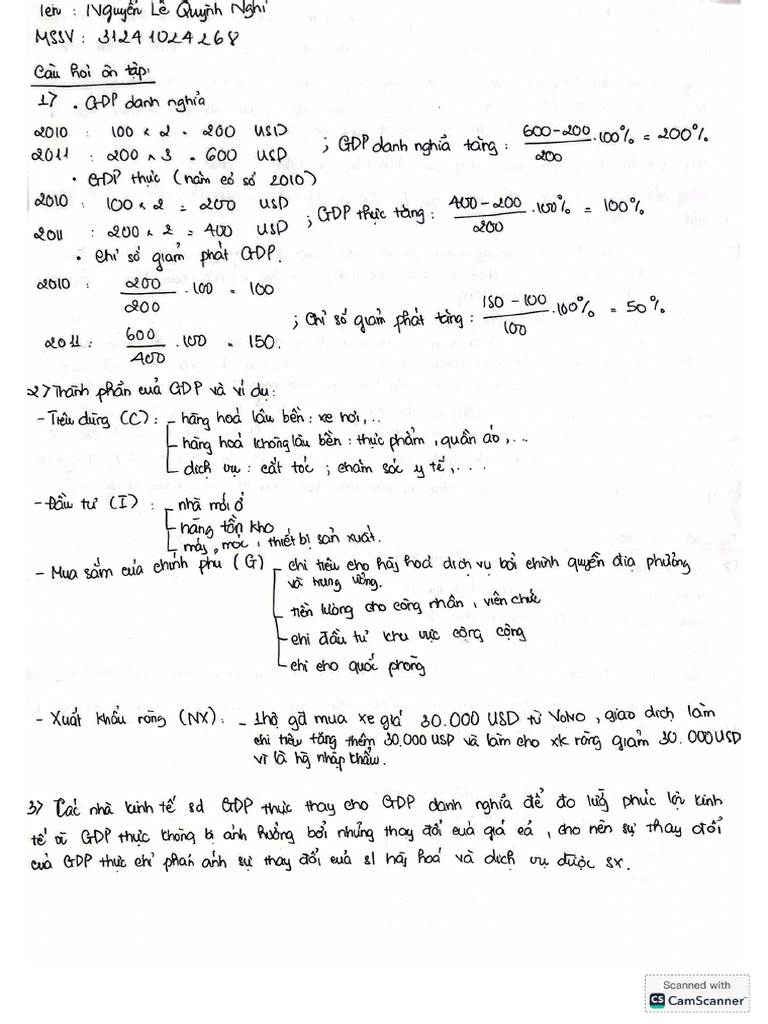 Tên : Nguyễn Lê Quỳnh Nghi
MSSV : 31241024268
Câu hỏi ôn tập:
1> • GDP danh nghĩa
2010 : 100 x 2 = 200 USD
2011 : 200 x 3 = 600 USD
; GDP danh nghĩa tăng : (600-200)/200 .100% = 200%
• GDP thực (năm cơ sở 2010)
2010 : 100 x 2 = 200 USD
2011 : 200 x 2 = 400 USD
; GDP thực tăng : (400-200)/200 .100% = 100%
• Chỉ số giảm phát GDP.
2010 : 200/200 .100 = 100
2011 : 600/400 .100 = 150.
; Chỉ số giảm phát tăng : (150-100)/100 .100% = 50%
2> Thành phần của GDP và ví dụ :
- Tiêu dùng (C) : - hàng hoá lâu bền : xe hơi,..
- hàng hoá không lâu bền : thực phẩm, quần áo,...
- dịch vụ : cắt tóc ; chăm sóc y tế,...
- Đầu tư (I) : - nhà mới ở
- hàng tồn kho
- máy, móc, thiết bị sản xuất.
- Mua sắm của chính phủ (G) - chi tiêu cho hàg hoá dịch vụ bởi chính quyền địa phương
và trung ương.
- tiền lương cho công nhân, viên chức
- chi đầu tư khu vực công cộng
- chi cho quốc phòng
- Xuất khẩu ròng (NX) : - 1 hộ gđ mua xe giá 30.000 USD từ Volvo, giao dịch làm
chi tiêu tăng thêm 30.000 USD và làm cho xk ròng giảm 30.000USD
vì là hg nhập khẩu.
3> Các nhà kinh tế sd GDP thực thay cho GDP danh nghĩa để đo lườg phúc lợi kinh
tế vì GDP thực không bị ảnh hưởng bởi những thay đổi của giá cả, cho nên sự thay đổi
của GDP thực chỉ phản ánh sự thay đổi của sl hàg hoá và dịch vụ được sx.
Scanned with
CS CamScanner